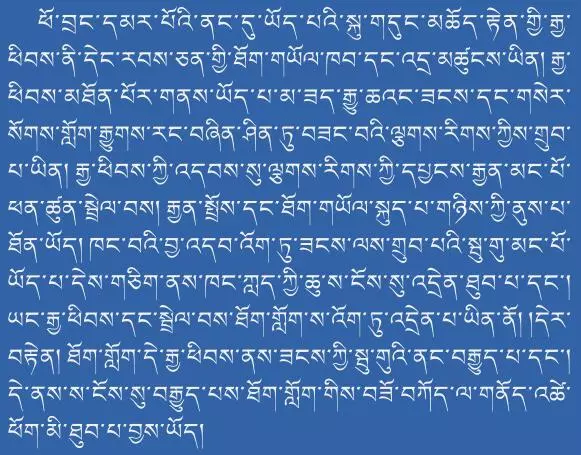 ཕོ་བྲང་དམར་པོའི་ནང་དུ་ཡོད་པའི་སྐུ་གདུང་མཆོད་རྟེན་གྱི་རྒྱ་
ཕིབས་ནི་དེང་རབས་ཅན་གྱི་ཐོག་གཡོལ་ཁབ་དང་འདྲ་མཚུངས་ཡིན། རྒྱ་
ཕིབས་མཐོན་པོར་གནས་ཡོད་པ་མ་ཟད་རྒྱུ་ཆའང་ཟངས་དང་གསེར་
སོགས་གློག་རྒྱུགས་རང་བཞིན་ཤིན་ཏུ་བཟང་བའི་ལྕགས་རིགས་ཀྱིས་གྲུབ་
པ་ཡིན། རྒྱ་ཕིབས་ཀྱི་འདབས་སུ་ལྕགས་རིགས་ཀྱི་དཔྱངས་རྒྱན་མང་པོ་
ཕན་ཚུན་སྦྲེལ་བས། རྒྱན་སྤྲོས་དང་ཐོག་གཡོལ་སྐུད་པ་གཉིས་ཀྱི་ནུས་པ་
ཐོན་ཡོད། ཁང་བའི་བྱ་འདབ་འོག་ཏུ་ཟངས་ལས་གྲུབ་པའི་སྦུ་གུ་མང་པོ་
ཡོད་པ་དེས་གཅིག་ནས་ཁང་ཀླད་ཀྱི་ཆུ་ས་ངོས་སུ་འདྲེན་ཐུབ་པ་དང་།
ཡང་རྒྱ་ཕིབས་དང་སྦྲེལ་བས་ཐོག་གློག་ས་འོག་ཏུ་འདྲེན་པ་ཡིན་ནོ། །དེར་
བརྟེན། ཐོག་གློག་དེ་རྒྱ་ཕིབས་ནས་ཟངས་ཀྱི་སྦུ་གུའི་ནང་བརྒྱུད་པ་དང་།
དེ་ནས་ས་ངོས་སུ་བརྒྱུད་པས་ཐོག་གློག་གིས་བཟོ་བཀོད་ལ་གནོད་འཚེ་
ཕོག་མི་ཐུབ་པ་བྱས་ཡོད།